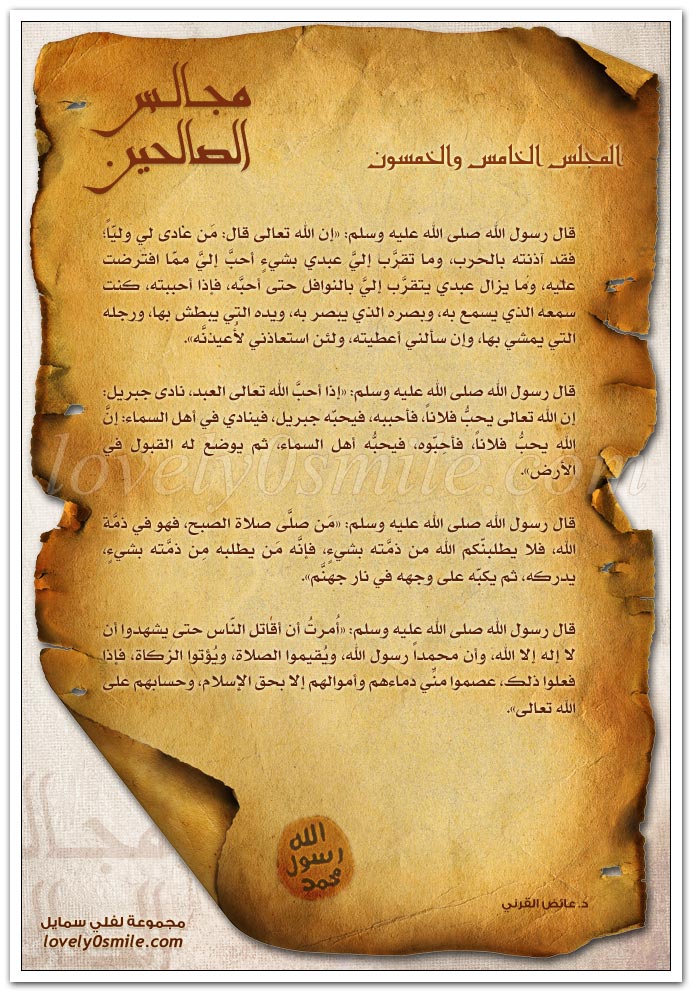 مجالس
الصالحين
المجلس الخامس والخمسون
قال رسول الله صلى الله عليه وسلم: «إن الله تعالى قال: مَن عادى لي وليّاً؛
فقد آذنته بالحرب، وما تقرَّب إليَّ عبدي بشيءٍ أحبَّ إليَّ ممّا افترضت
عليه، وما يزال عبدي يتقرَّب إليَّ بالنوافل حتى أحبَّه، فإذا أحببته، كنت
سمعه الذي يسمع به، وبصره الذي يبصر به، ويده التي يبطش بها، ورجله
التي يمشي بها، وإن سألني أعطيته، ولئن استعاذني لأُعيذنَّه».
قال رسول الله صلى الله عليه وسلم: «إذا أحبَّ الله تعالى العبد، نادى جبريل:
إن الله تعالى يحبُّ فلاناً، فأحببه، فيحبّه جبريل، فينادي في أهل السماء: إنَّ
الله يحبُّ فلاناً، فأحِبّوه، فيحبُّه أهل السماء، ثم يوضع له القبول في
الأرض».
قال رسول الله صلى الله عليه وسلم: «مَن صلَّى صلاة الصبح، فهو في ذمَّة
الله، فلا يطلبنّكم الله من ذمَّته بشيءٍ، فإنَّه مَن يطلبه مِن ذمَّته بشيءٍ،
يدركه، ثم يكبّه على وجهه في نار جهنَّم».
قال رسول الله صلى الله عليه وسلم: «أُمرتُ أن أقاتل النّاس حتى يشهدوا أن
لا إله إلا الله، وأن محمداً رسول الله، ويُقيموا الصلاة، ويُؤتوا الزكاة، فإذا
فعلوا ذلك، عصموا منِّي دماءهم وأموالهم إلا بحق الإسلام، وحسابهم على
الله تعالى».
lovely0smile.com
الله
رسول
محمد
د.عائض القرني
مجموعة لفلي سمايل
lovely0smile.com